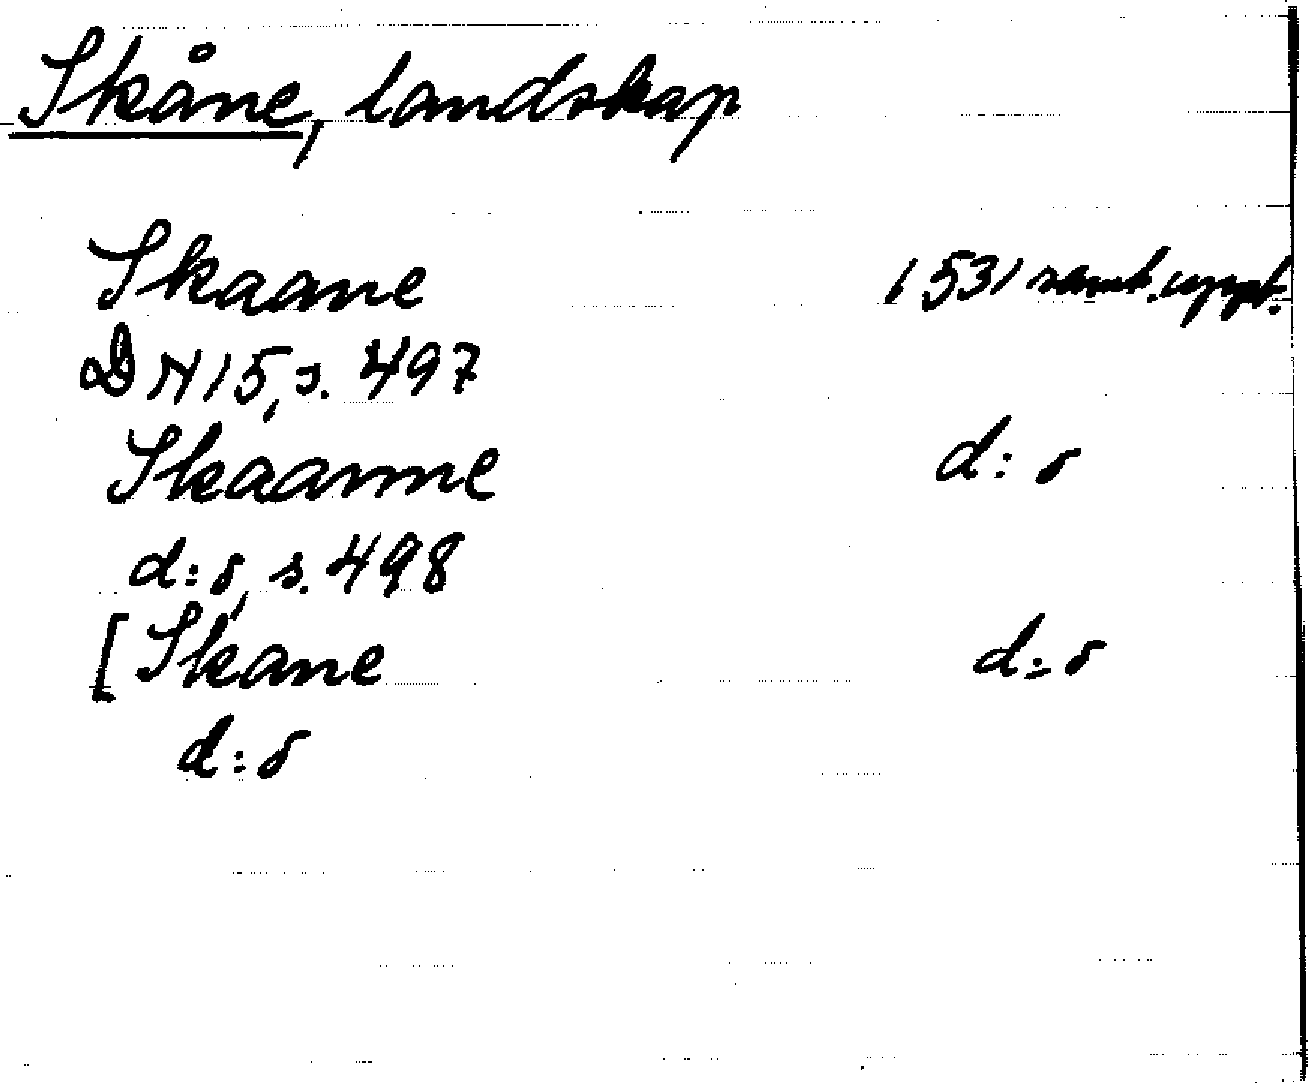 Skåne, landskap
Skaane 1531 samt. uppt.
DN 15, s. 497
Skaanne d:o
d:o, s. 498
[Skane d:o
d:o